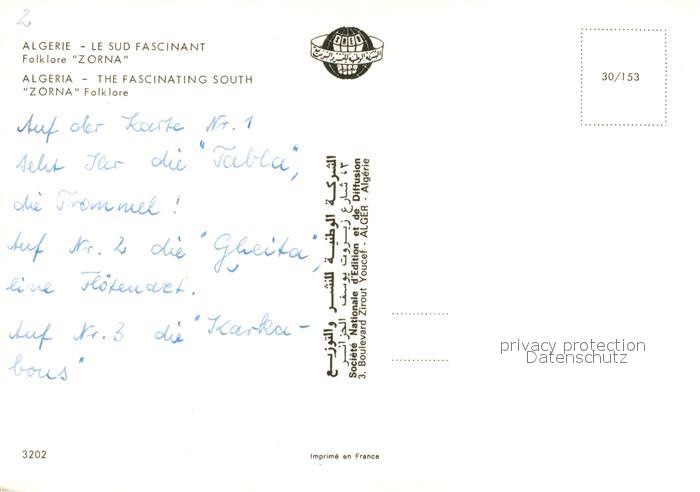 2
ALGERIE - LE SUD FASCINANT
Folklore "ZORNA"
ALGERIA - THE FASCINATING SOUTH
"ZORNA" Folklore
Auf der Karte Nr. 1
seht Ihr die "Tabla",
die Trommel!
Auf Nr. 2 die "Gheita",
eine Flötenart.
Auf Nr. 3 die "Karka-
bous"
3202
الشركة الوطنية للنشر والتوزيع
٣ شارع زيروت يوسف الجزائر
Société Nationale d'Edition et de Diffusion
3, Boulevard Zirout Youcef - ALGER - Algérie
Imprimé en France
30/153
privacy protection
Datenschutz